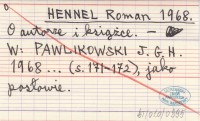 HENNEL Roman 1968.
O autorze i książce. —
W: PAWLIKOWSKI J.G.H.
1968... (s. 171-172), jako
posłowie.